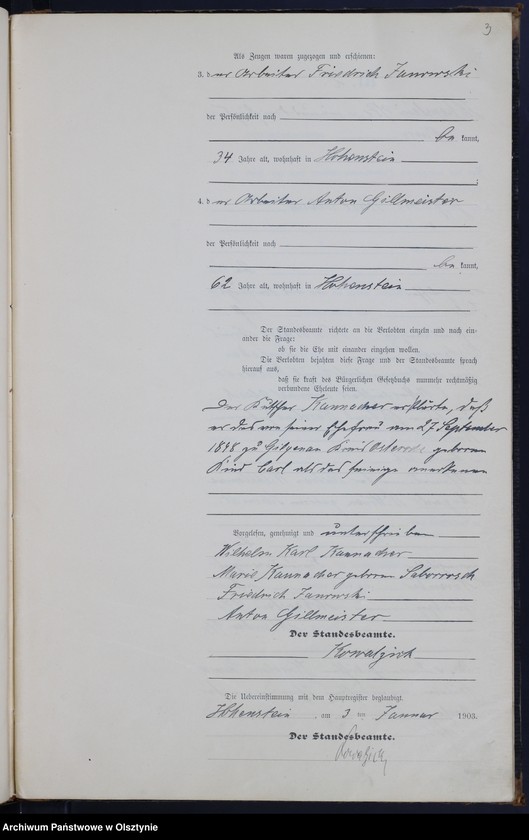 3
Als Zeugen waren zugezogen und erschienen:
3. der Arbeiter Friedrich Janowski
der Persönlichkeit nach
be kannt,
34 Jahre alt, wohnhaft in Hohenstein
;
4. der Arbeiter Anton Gillmeister
der Persönlichkeit nach
be kannt,
62 Jahre alt, wohnhaft in Hohenstein
Der Standesbeamte richtete an die Verlobten einzeln und nach ein-
ander die Frage:
ob sie die Ehe mit einander eingehen wollen.
Die Verlobten bejahten diese Frage und der Standesbeamte sprach
hierauf aus,
daß sie kraft des Bürgerlichen Gesetzbuchs nunmehr rechtmäßig
verbundene Eheleute seien.
Der Kutscher Kannacher erklärte, daß
er das von seiner Ehefrau am 27. September
zu Kreis Osterode geborene
Kind Carl als das seinige anerkenne
Vorgelesen, genehmigt und unterschrieben
Wilhelm Karl Kannacher
Marie Kannacher geborene
Friedrich Janowski
Anton Gillmeister
Der Standesbeamte.
Kowalzick
Die Uebereinstimmung mit dem Hauptregister beglaubigt.
Hohenstein, am 3 ten Januar 1903.
Der Standesbeamte.
Kowalzick
Archiwum Państwowe w Olsztynie